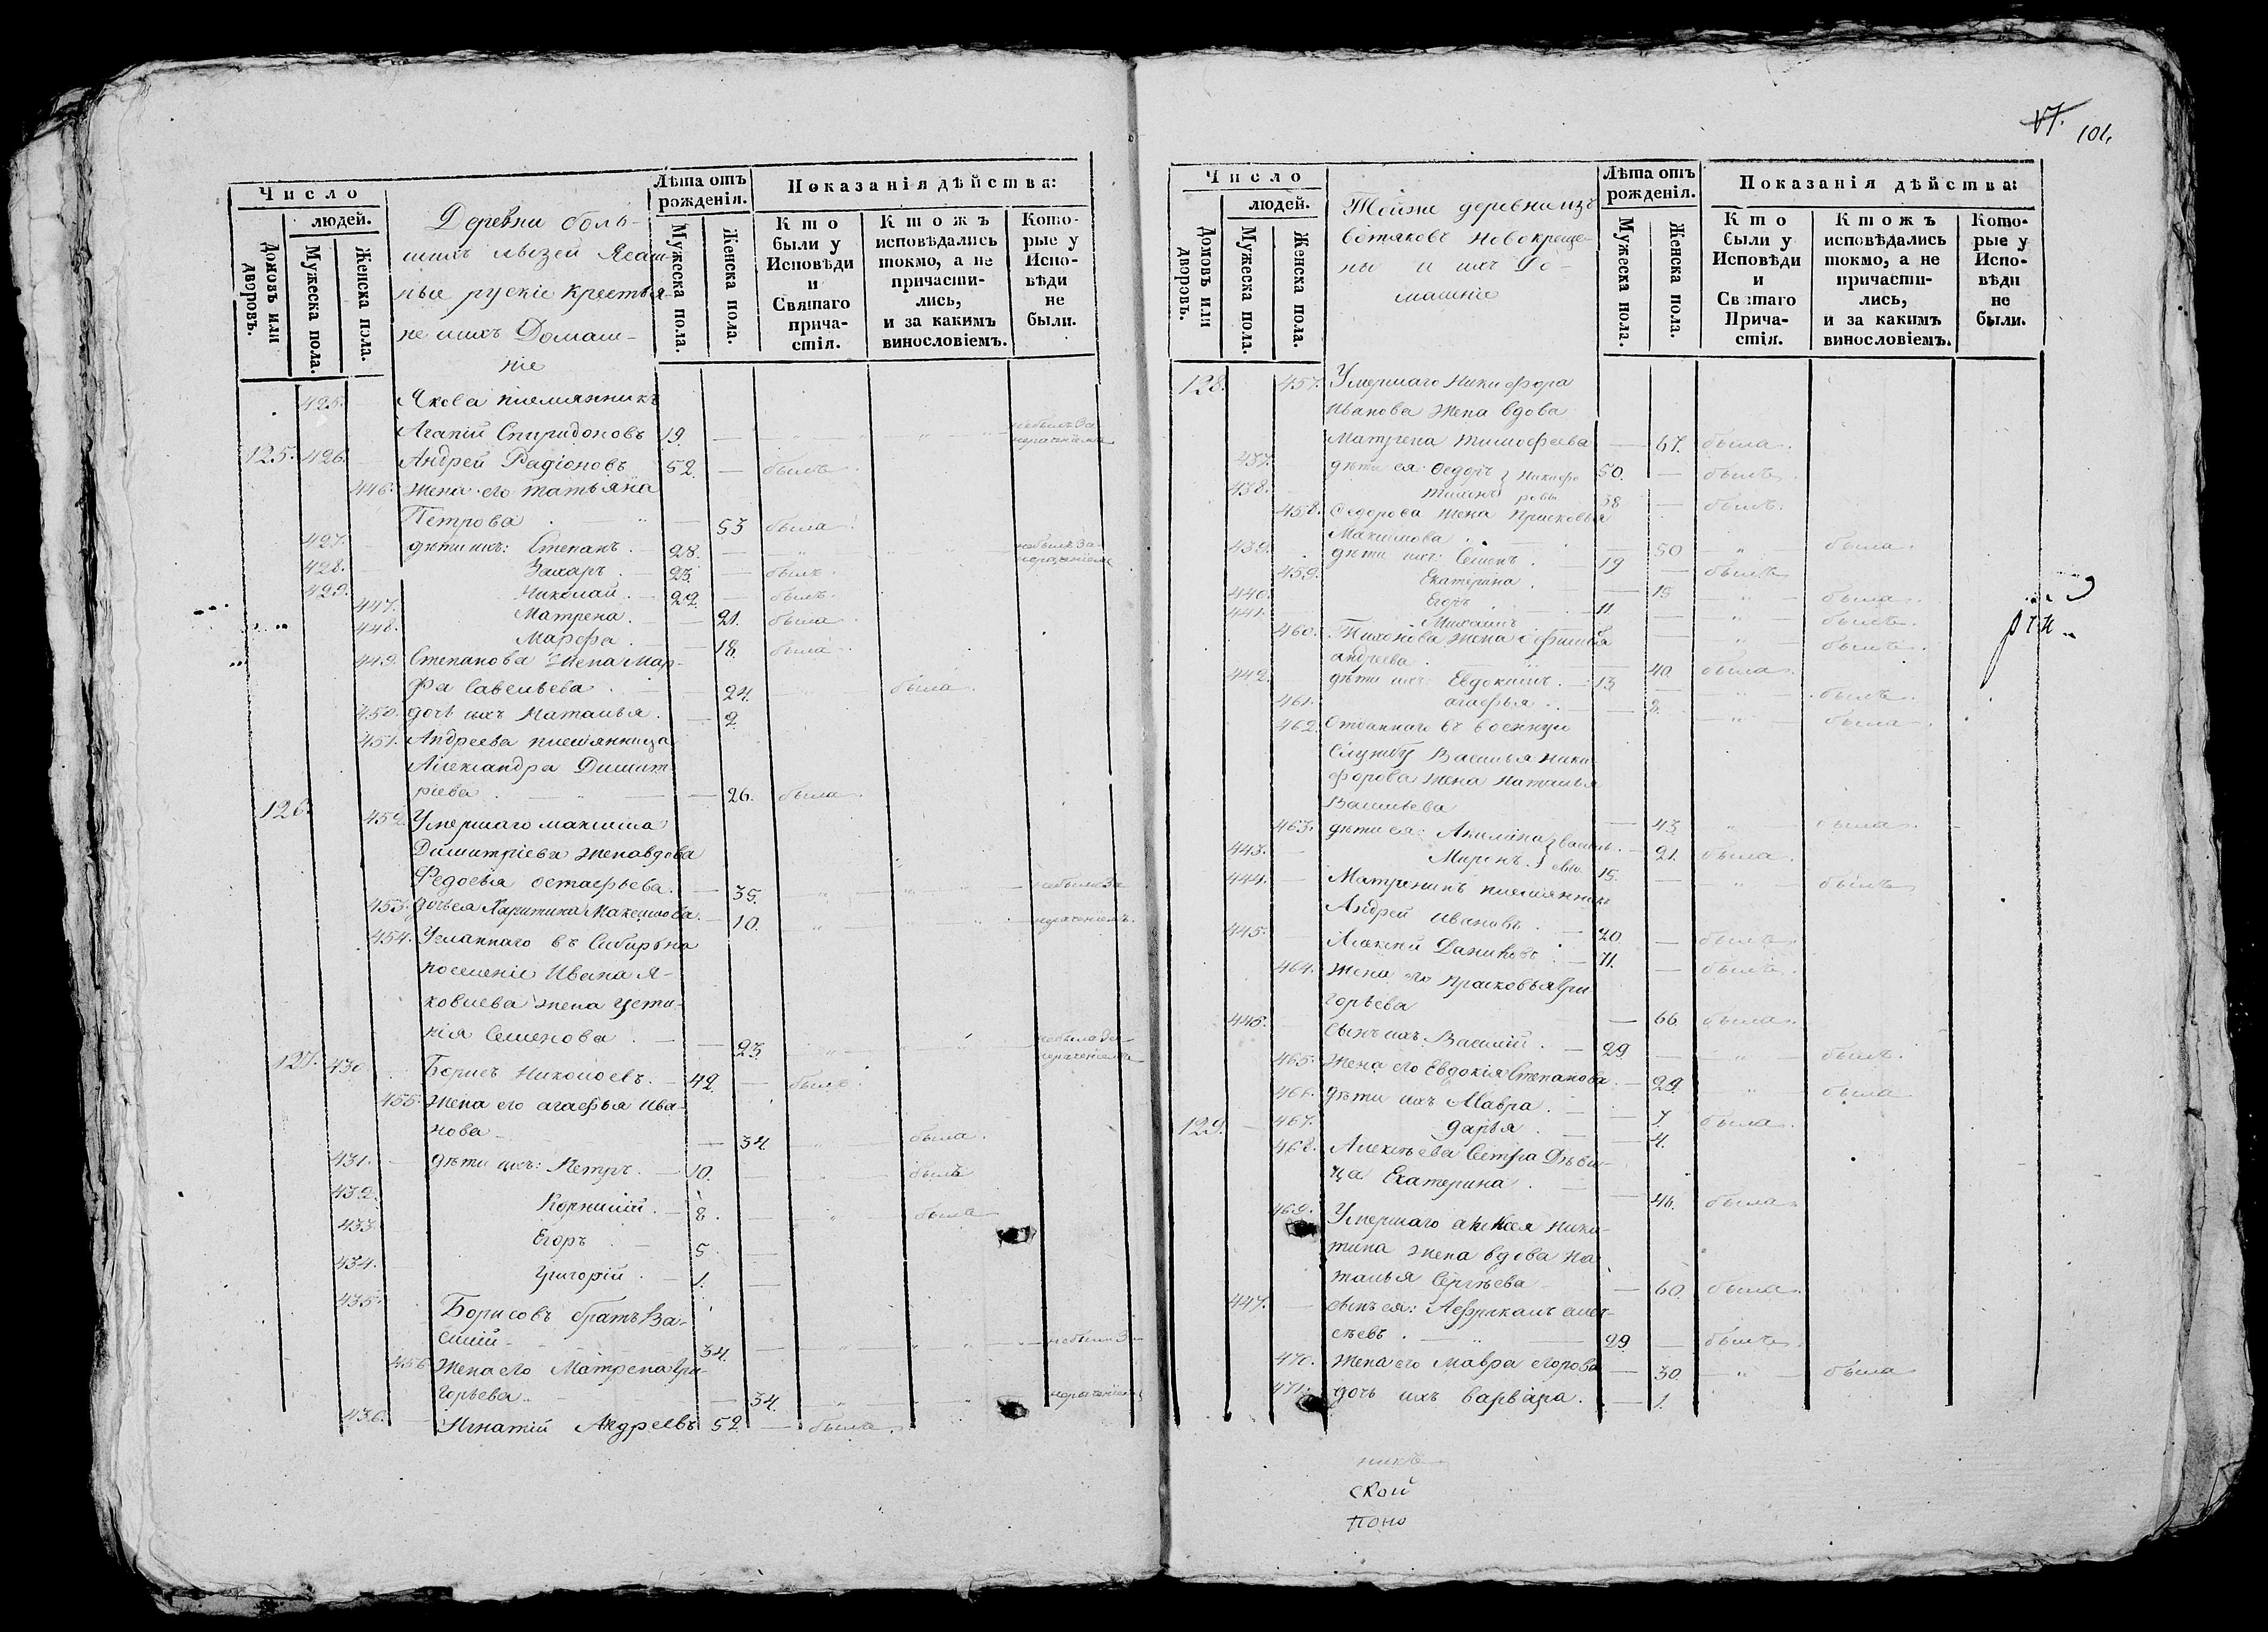 Число
людей.
Домовъ или дворовъ.
Мужеска пола.
Женска пола.
Деревни боль-
шихъ
ные руские крестья-
не и ихъ Домаш-
ніе
Лѣта отъ рожденія.
Мужеска пола.
Женска пола.
Показанія дѣйства:
Кто были у Исповѣди и Святаго причастія.
Ктожъ исповѣдались токмо, а не причастились, и за какимъ винословіемъ.
Которые у Исповѣди не были.
425. Якова племянникъ
Агапій Спиридоновъ 19. — небылъ за нераченіемъ
125. 426. Андрей Радіоновъ 52. — былъ.
446. жена его татьяна
Петрова — 53 была.
427. дѣти ихъ: Степанъ. 28. — небылъ за нераченіем
428. Захаръ. 23. — былъ.
429. Николай. 22. — былъ.
447. Матрена. — 21. была
448. Марфа. — 18. была
449. Степанова жена Мар-
фа Савельева. — 24. была.
450. дочь ихъ Наталья. — 2.
451. Андреева племянница
Александра Димит-
ріева. — 26. была.
126. 452. Умершаго максима
Димитріева жена вдова
Федосья остафьева. — 35. небыли за
453. дочь ея Харитина Максимова. — 10. нераченіемъ.
454. Усланнаго въ Сибирь на
поселеніе Ивана Я-
ковлева жена усти-
нія Семенова. — 23 небыла за нераченіемъ
127. 430 Борисъ Николаевъ. 42. — былъ.
455. жена его агафья Ива-
нова — 34. была.
431. дѣти ихъ: Петръ. 10. былъ
432. Корнилій. 8. былъ
433. Егоръ 5. —
434. Григорій. 1. —
435. Борисовъ братъ Ва-
силій 34. — небыли за
456 Жена его Матрена Гри-
горьева. — 34. нераченіемъ
436. Игнатій Андреевъ 52. — была.
101.
Число
людей.
Домовъ или дворовъ.
Мужеска пола.
Женска пола.
Тойже деревни изъ
вотяковъ новокреще-
ны и ихъ До-
машніе
Лѣта отъ рожденія.
Мужеска пола.
Женска пола.
Показанія дѣйства:
Кто были у Исповѣди и Святаго Причастія.
Ктожъ исповѣдались токмо, а не причастились, и за какимъ винословіемъ.
Которые у Исповѣди не были.
128. 457. Умершаго Никифора
Иванова жена вдова
Матрена тимофеева — 67. была.
437. дѣти ея: Федоръ Никифо 50. — былъ.
438. тихонъ ровы 38 — былъ.
458. Федорова жена Прасковья
Максимова — 50 была.
439. дѣти ихъ: Семенъ. 19 — былъ
459. Екатерина. — 15 была.
440. Егоръ 11 былъ.
441. Михаилъ былъ.
460. Тихонова жена Офимья
андреева. — 40. была
442. дѣти ихъ: Евдокимъ. 13 былъ
461. агафья. — 8. была
462. Отданнаго въ военную
Службу Василья Ники-
форова жена Наталья
Васильева — 43 была
463. дѣти ея: Акилина василь- — 21. была
443. Миронъ. евы. 15. былъ
444. Матренинъ племянникъ
Андрей Ивановъ. 20. — былъ
445. Алексѣй Даниловъ. 71. — былъ
464. жена его Прасковья Гри
горьева — 66. была
445. Сынъ ихъ Василій. 29. былъ.
465. Жена его Евдокія Степанова. — 29 была
466. дѣти ихъ Мавра. — 7 была
129. 467. дарья. — 4.
468. Алексѣева Сестра Дѣви-
ца Екатерина. — 46. была
469. Умершаго алексея Ники-
тина жена вдова На-
талья Сергѣева — 60. была
447. сынъ ея: Африканъ алек-
сѣевъ. 29 — былъ
470. Жена его Мавра егорова — 30. была
471. дочь ихъ варвара. — 1.
никъ
ской
поно